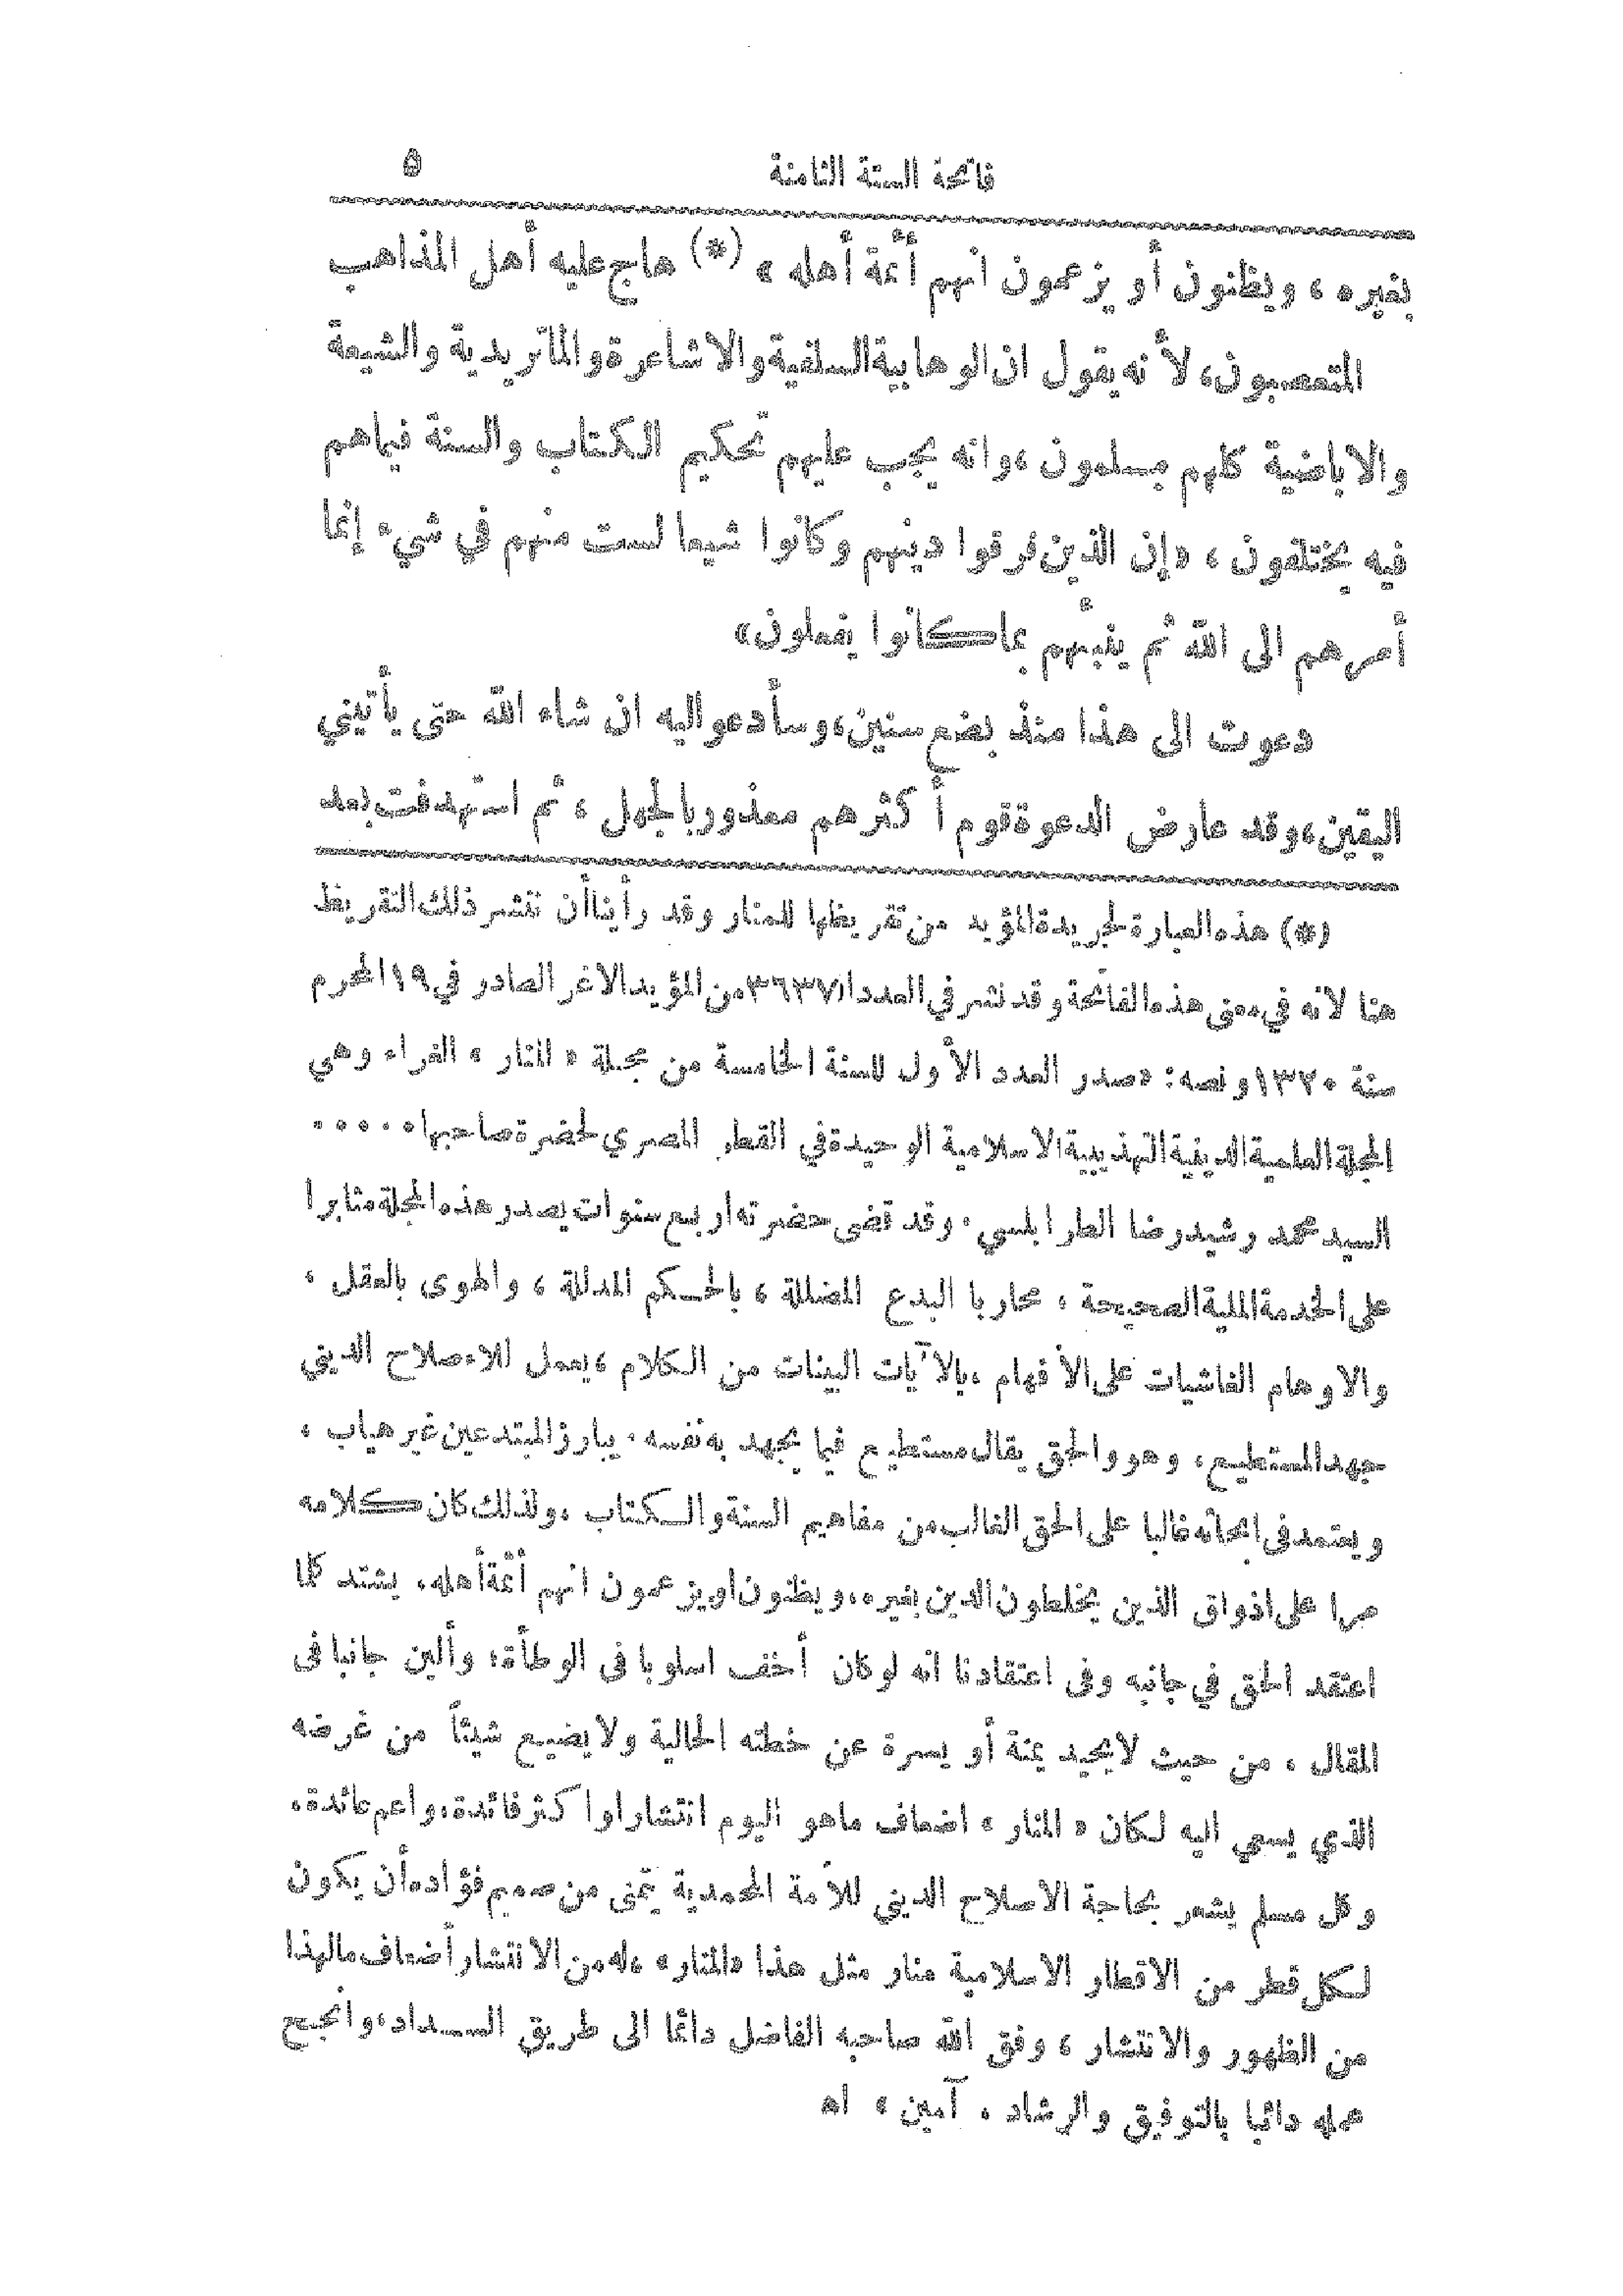 فاتحة السنة الثامنة ٥
بغيره ، ويظنون أو يزعمون انهم أئمة أهله » (*) هاج عليه أهل المذاهب
المتعصبون، لأنه يقول ان الوهابية السلفية والاشاعرة والماتريدية والشيعة
والاباضية كلهم مسلمون ، وانه يجب عليهم تحكيم الكتاب والسنة فيماهم
فيه يختلفون ، «إن الذين فرقوا دينهم وكانوا شيعا لست منهم في شيء إنما
أمرهم الى الله ثم ينبئهم بما كانوا يفعلون»
دعوت الى هذا منذ بضع سنين، وسأدعو اليه ان شاء الله حتى يأتيني
اليقين، وقد عارض الدعوة قوم أكثرهم معذور بالجهل ، ثم استهدفت بعد
(*) هذه العبارة لجريدة المؤيد من تقريظها للمنار وقد رأينا أن ننشر ذلك التقريظ
هنا لانه في معنى هذه الفاتحة وقد نشر في العدد ٣٦٣٧ من المؤيد الاغر الصادر في ١٩ المحرم
سنة ١٣٢٠ ونصه : «صدر العدد الأول للسنة الخامسة من مجلة « المنار » الغراء وهي
المجلة العلمية الدينية التهذيبية الاسلامية الوحيدة في القطر المصري لحضرة صاحبها ٠ ٠ ٠ ٠ ٠
السيد محمد رشيد رضا الطرابلسي ٠ وقد قضى حضرته اربع سنوات يصدر هذه المجلة مثابرا
على الخدمة الملية الصحيحة ، محاربا البدع المضللة ، بالحكم المدللة ، والهوى بالعقل ،
والاوهام الغاشيات على الأفهام ، بالآيات البينات من الكلام ، يعمل للاصلاح الديني
جهد المستطيع ، وهو والحق يقال مستطيع فيما يجهد به نفسه ٠ يبارز المبتدعين غير هياب ،
ويعتمد فى ابحاثه غالبا على الحق الغالب من مفاهيم السنة والكتاب ، ولذلك كان كلامه
مرا على اذواق الذين يخلطون الدين بغيره ، ويظنون او يزعمون انهم أئمة أهله ، يشتد كلما
اعتقد الحق في جانبه وفى اعتقادنا انه لو كان أخف اسلوبا فى الوطأة ، وألين جانبا فى
المقال ، من حيث لا يحيد يمنة أو يسرة عن خطته الحالية ولا يضيع شيئاً من غرضه
الذي يسعى اليه لكان « المنار » اضعاف ماهو اليوم انتشارا واكثر فائدة ، واعم عائدة ،
وكل مسلم يشعر بحاجة الاصلاح الديني للأمة المحمدية يتمنى من صميم فؤاده أن يكون
لكل قطر من الاقطار الاسلامية منار مثل هذا «المنار» ، له من الانتشار أضعاف مالهذا
من الظهور والانتشار ، وفق الله صاحبه الفاضل دائما الى طريق السداد ، وانجح
عمله دائبا بالتوفيق والرشاد ، آمين » اه